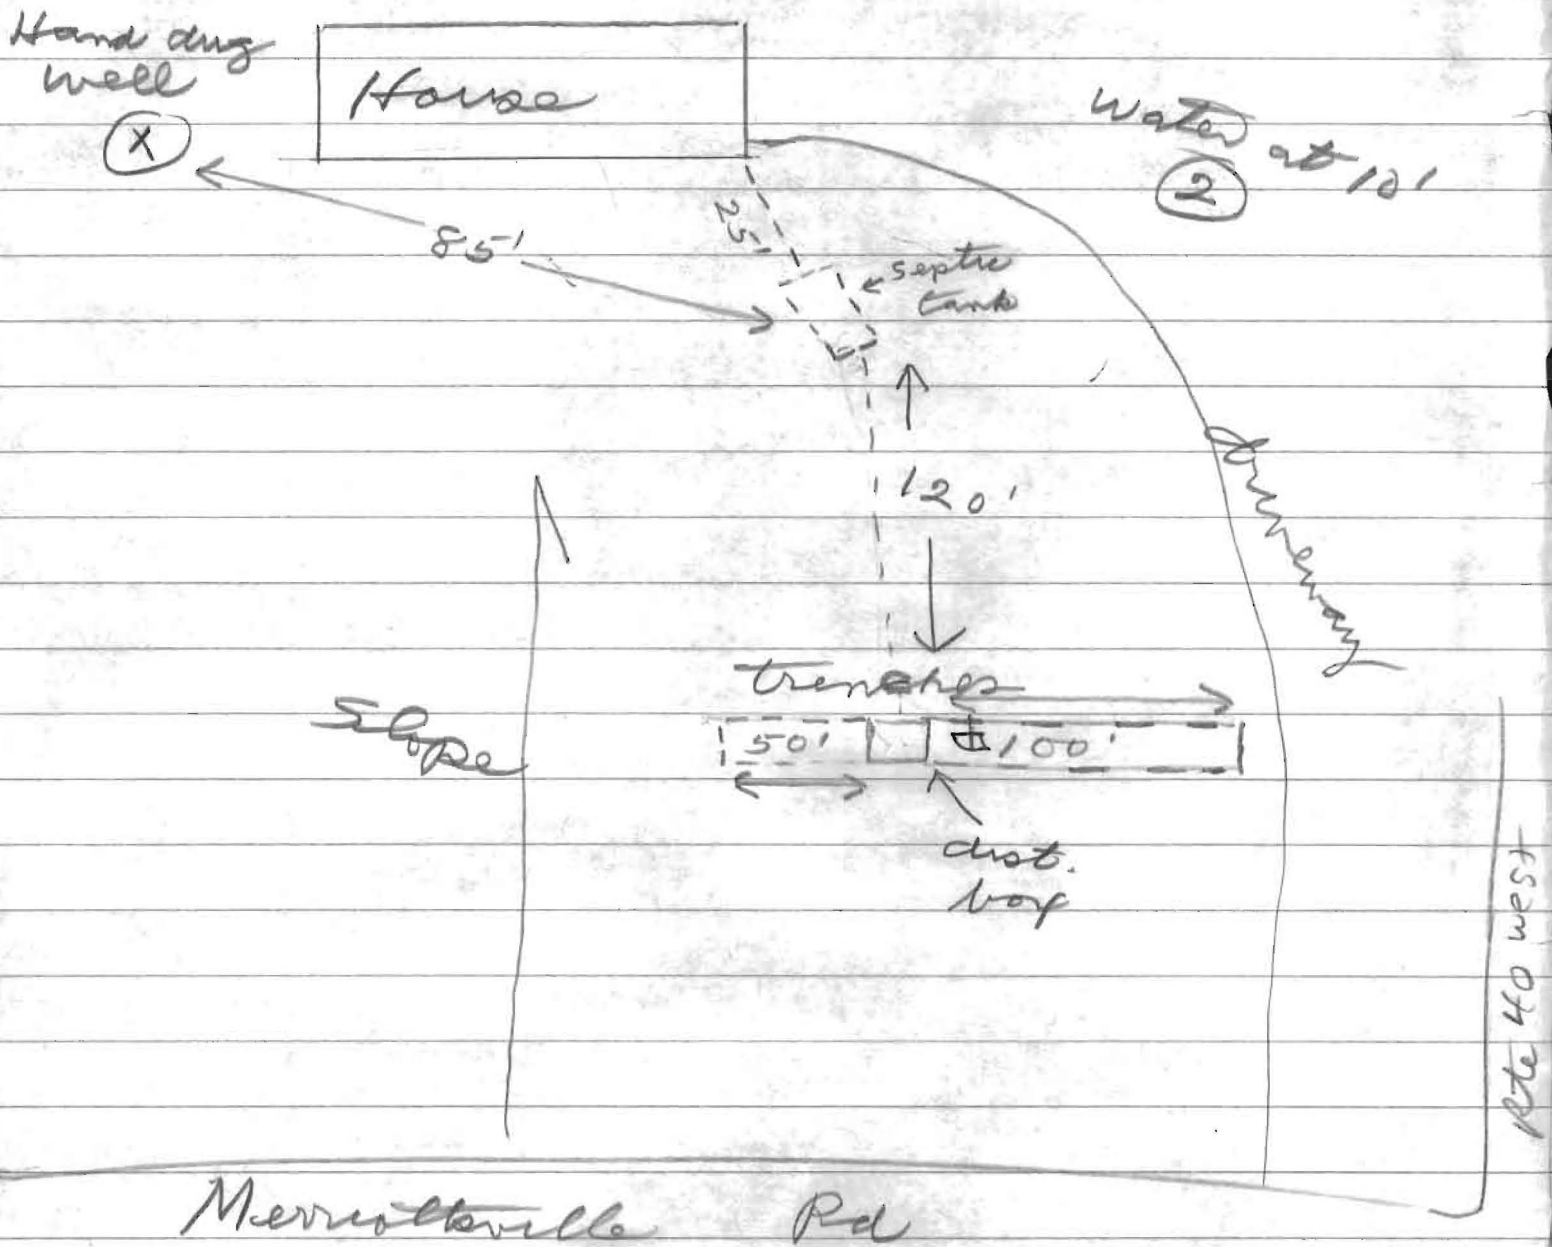 Hand dug
well
X
House
Water at 10'
2
25'
85'
septic
tank
120'
driveway
trenches
50'
100'
Slope
dist.
box
Rte 40 west
Merriottsville Rd